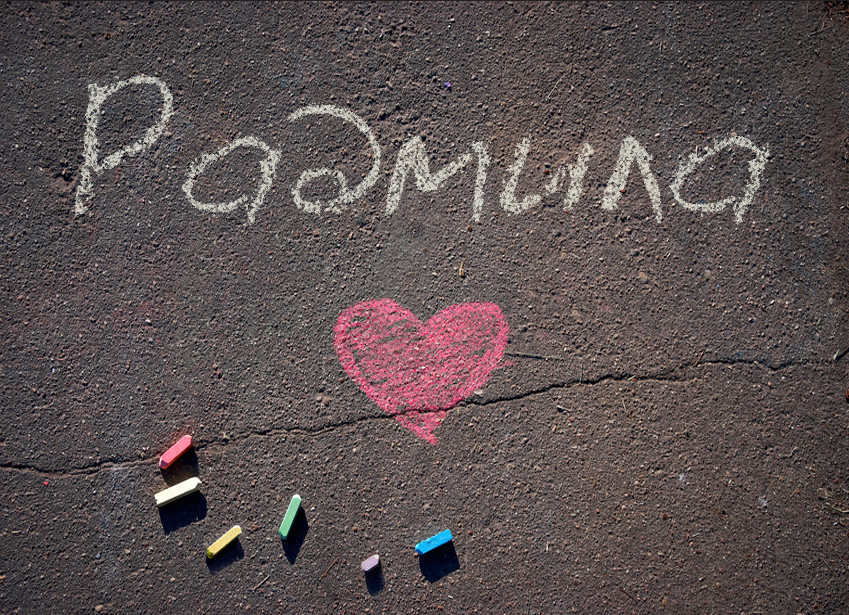 Радмила